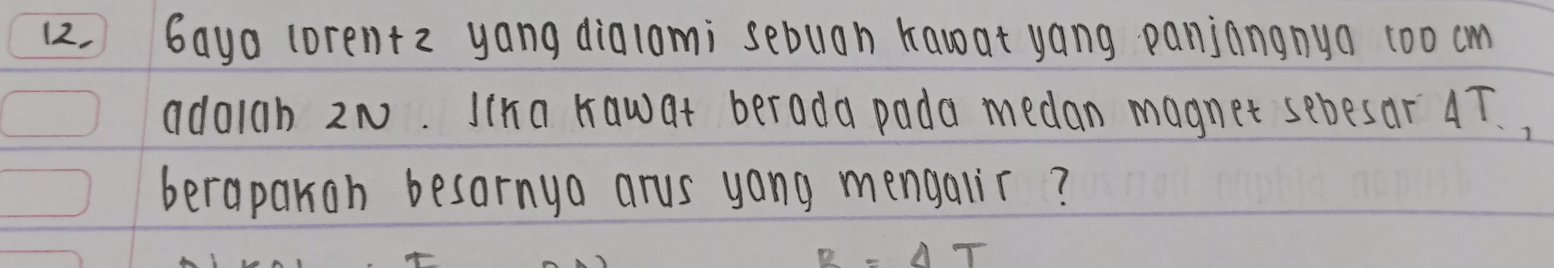 12. Gaya lorentz yang dialami sebuah kawat yang panjangnya 100 cm
adalah 2N. Jika kawat berada pada medan magnet sebesar 4T,
berapakah besarnya arus yang mengalir?
B = 4 T